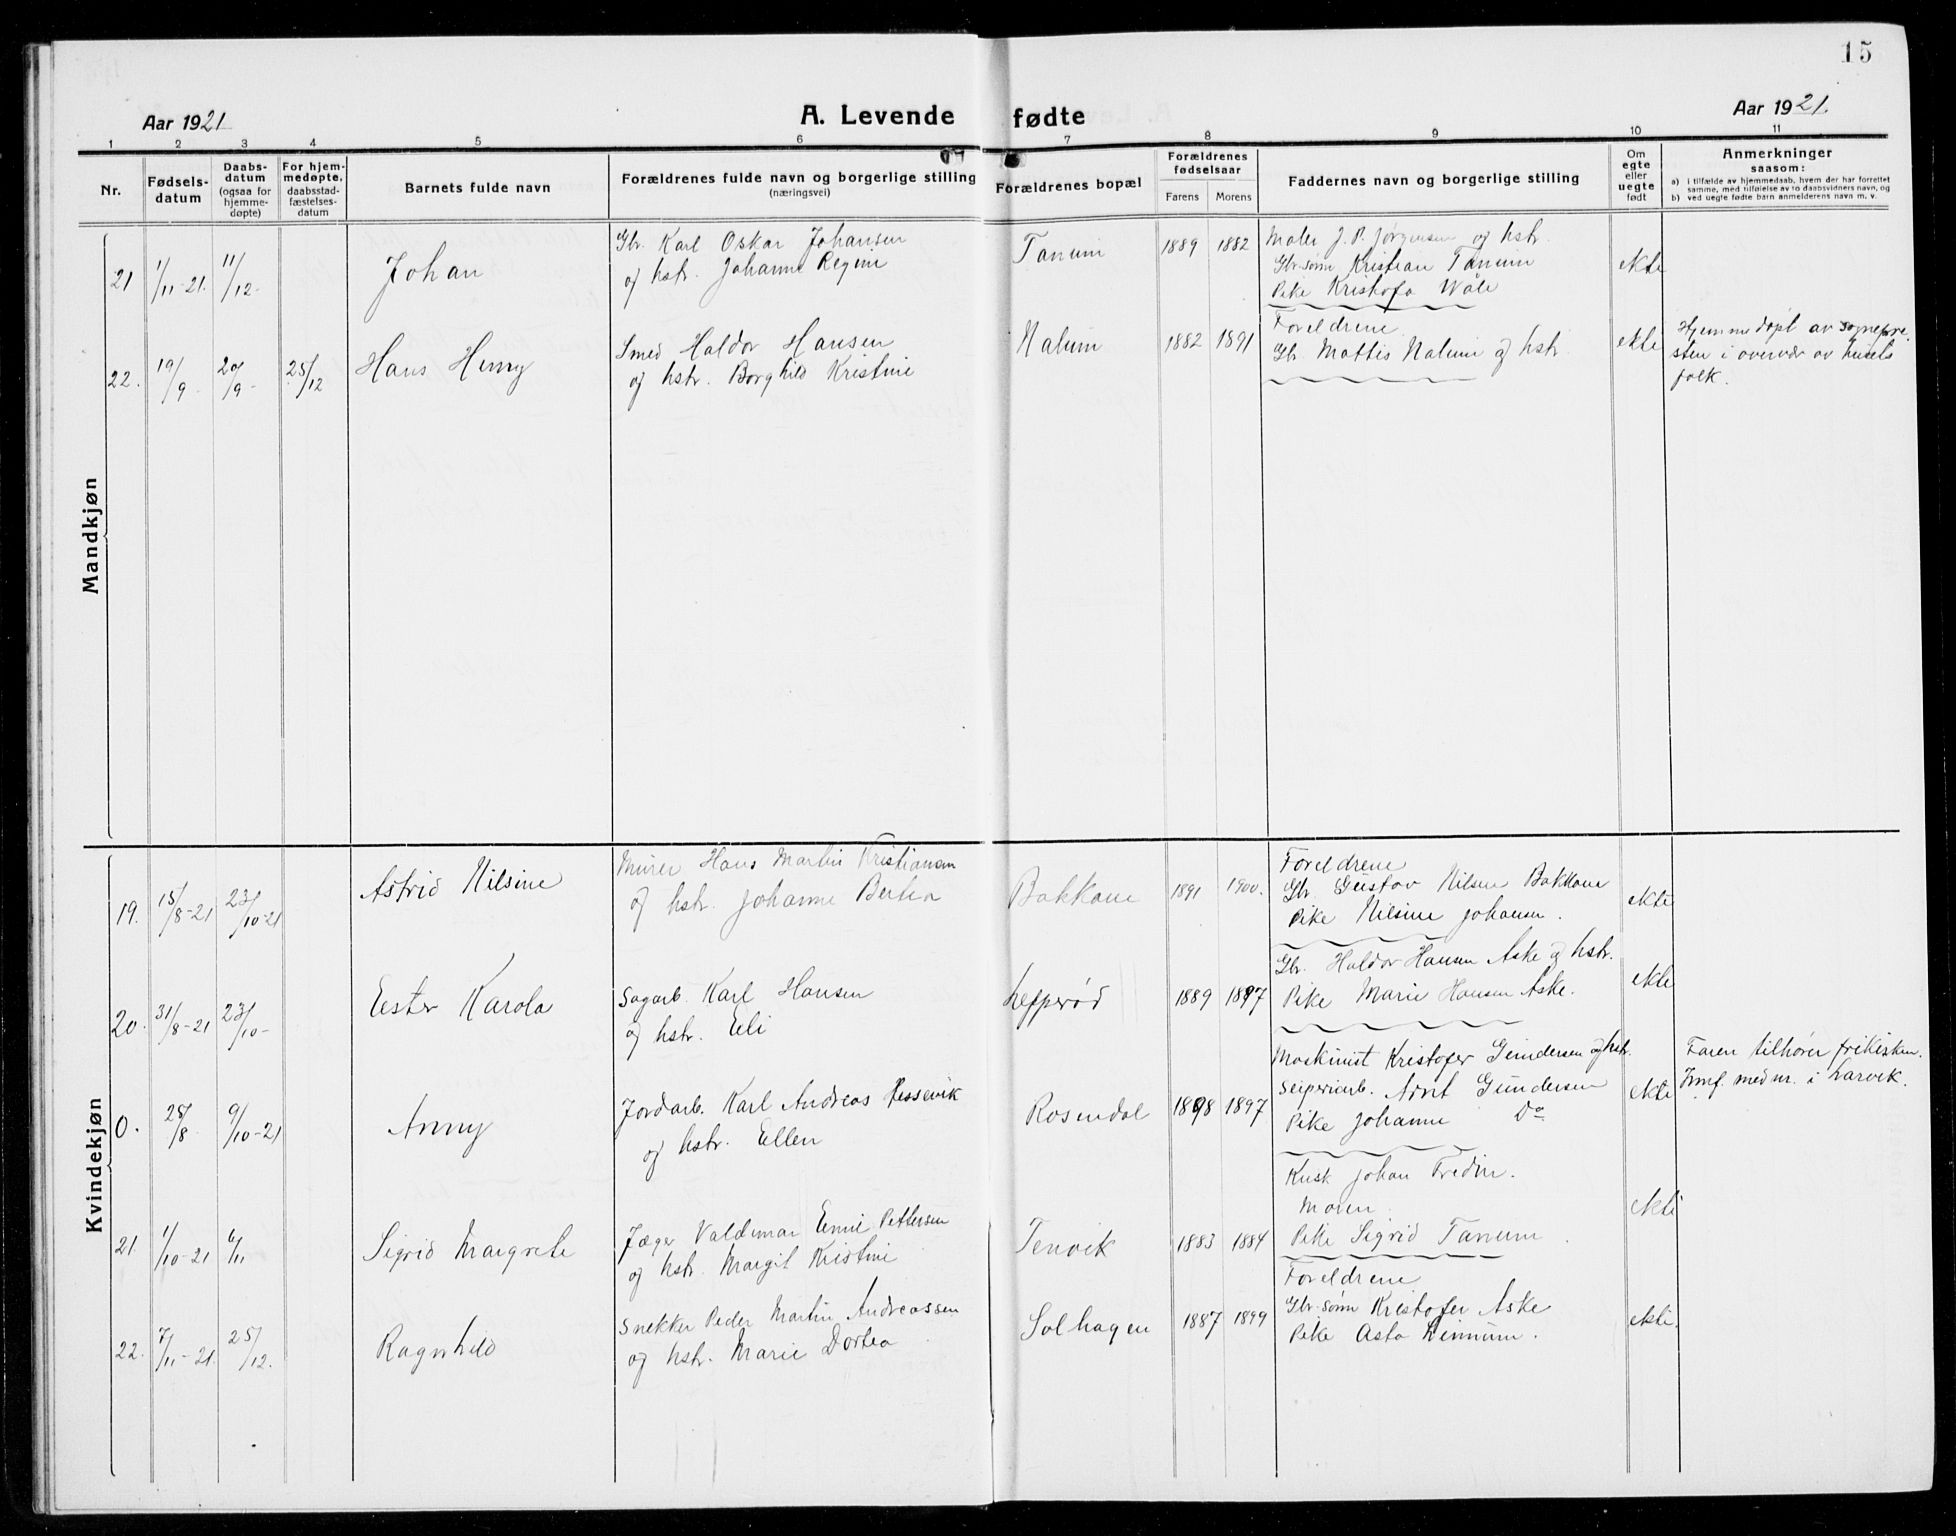 15
Aar 1921
A. Levende fødte
Aar 1921.
1 2 3 4 5 6 7 8 9 10 11
Nr.
Fødsels-
datum
Daabs-
datum
(ogsaa for
hjemme-
døpte)
For hjem-
medøpte,
daabsstad-
fæstelses-
datum
Barnets fulde navn
Forældrenes fulde navn og borgerlige stilling
(næringsvei)
Forældrenes bopæl
Forældrenes
fødselsaar
Farens Morens
Faddernes navn og borgerlige stilling
Om
egte
eller
uegte
født
Anmerkninger
saasom:
a) i tilfælde av hjemmedaab, hvem der har forrettet
samme, med tilføielse av to daabsvidners navn, og
b) ved uegte fødte barn anmelderens navn m. v.
Mandkjøn
21 1/11-21. 11/12-
Johan
Gbr. Karl Oskar Johansen
og hstr. Johanne Regine
Tanum
1889 1882
Maler J. P. Jørgensen og hstr.
Gbr.sønn Kristian Tanum
Pike Kristofa Wåle
ekte
22. 19/9- 20/9- 25/12
Hans Henry
Smed Haldor Hansen
og hstr. Borghild Kristine
Nalum
1882 1891
Foreldrene
Gbr. Mattis Nalum og hstr.
ekte
Hjemmedøpt av sognepre
sten i overvær av husets
folk.
Kvindekjøn
19. 15/8-21 23/10-21
Astrid Nilsine
Murer Hans Martin Kristiansen
og hstr. Johanne Bertea
Bakkane
1891 1900.
Foreldrene
Gbr. Gustav Nilsen Bakkane
Pike Nilsine Johansen.
ekte
20. 31/8-21 23/10-
Ester Karola
Sagarb. Karl Hansen
og hstr. Eli
Lepperød
1889 1897
Gbr. Haldor Hansen Aske og hstr.
Pike Marie Hansen Aske.
ekte
0. 25/8- 9/10-21
Anny
Jordarb. Karl Andreas
og hstr. Ellen
Rosendal
1898 1897
Maskinist Kristofer Gundersen og hstr.
Arnt Gundersen
Pike Johanne Do
ekte
Faren tilhører frikirken.
i Larvik.
21. 1/10-21 6/11
Sigrid Margrete
Jæger Valdemar Emil Pettersen
og hstr. Margit Kristine
Tenvik
1883 1884
Kusk Johan Fredin.
Moren.
Pike Sigrid Tanum.
ekte
22. 7/11-21. 25/12.
Ragnhild
Snekker Peder Martin Andreassen
og hstr. Marie Dortea
Solhagen
1887 1899
Foreldrene
Gbr.sønn Kristofer Aske
Pike Asta Linnum.
ekte.